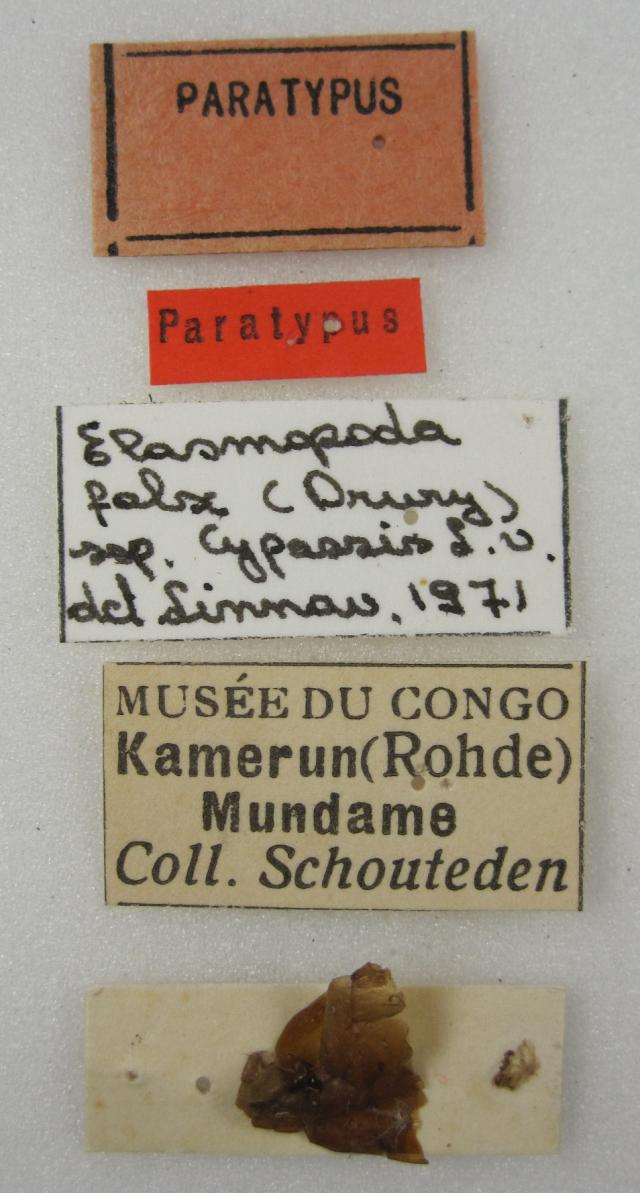 PARATYPUS
Paratypus
Elasmopoda
falx (Drury)
ssp. Cypassis L.v.
det Linnav. 1971
MUSÉE DU CONGO
Kamerun(Rohde)
Mundame
Coll. Schouteden